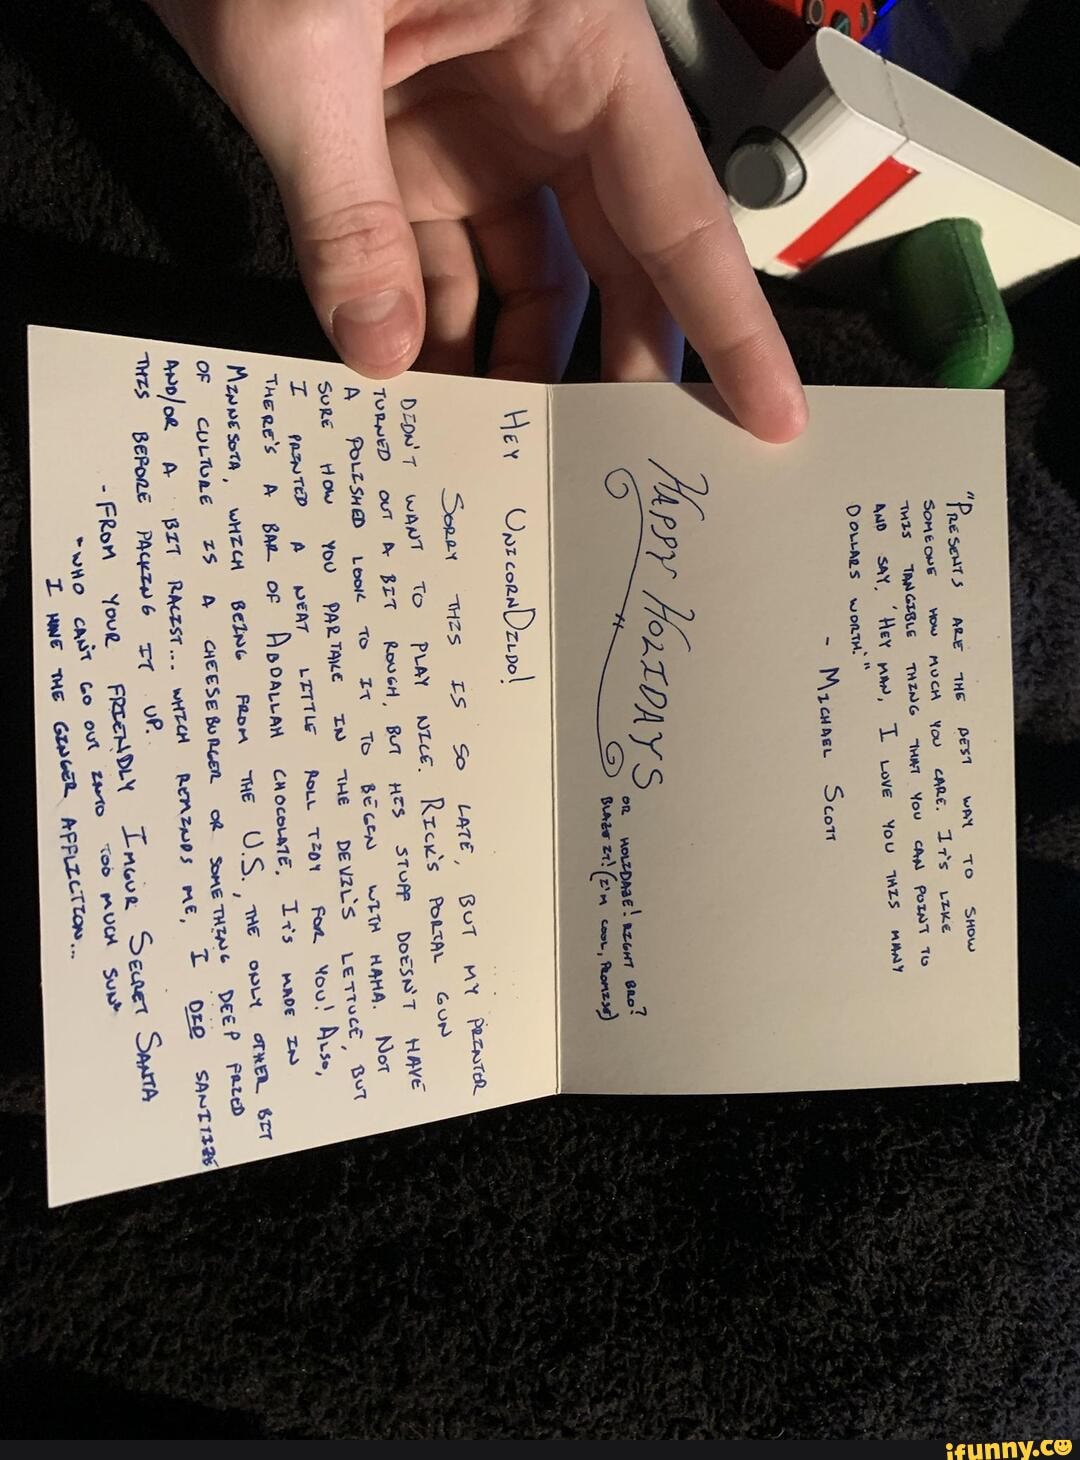 "Presents are the best way to show
someone how much you care. It's like
this tangible thing that you can point to
and say, 'Hey man, I love you this many
Dollars worth.'"
- Michael Scott
Happy Holidays
or holidaze! right bro?
Blaze it! (I'm cool, promise)
Hey UnicornDildo!
Sorry this is so late, but my printer
didn't want to play nice. Rick's portal gun
turned out a bit rough, but his stuff doesn't have
a polished look to it to begin with haha. Not
sure how you partake in the devil's lettuce, but
I printed a neat little roll tidy for you! Also,
there's a bar of Abdallah chocolate. It's made in
Minnesota, which being from the U.S., the only other bit
of culture is a cheeseburger or something deep fried
and/or a bit racist... which reminds me, I did sanitize
this before packing it up.
- From your friendly Imgur Secret Santa
"who can't go out into too much sun"
I hine the ginger affliction...
ifunny.co